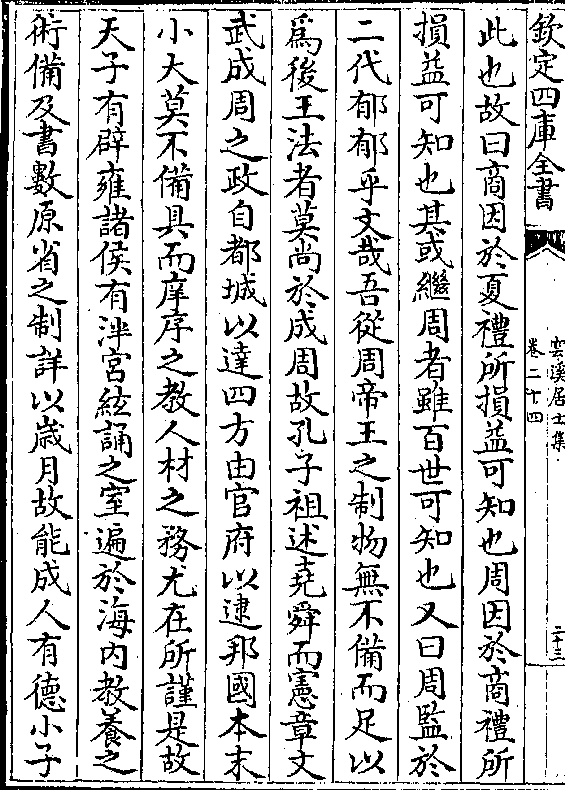 欽定四庫全書
雲溪居士集
卷二十四
二十三
此也故曰商因於夏禮所損益可知也周因於商禮所
損益可知也其或繼周者雖百世可知也又曰周監於
二代郁郁乎文哉吾從周帝王之制物無不備而足以
爲後王法者莫尚於成周故孔子祖述堯舜而憲章文
武成周之政自都城以達四方由官府以逮邦國本末
小大莫不備具而庠序之教人材之務尤在所謹是故
天子有辟雍諸侯有泮宮絃誦之室遍於海内教養之
術備及書數原省之制詳以歲月故能成人有德小子